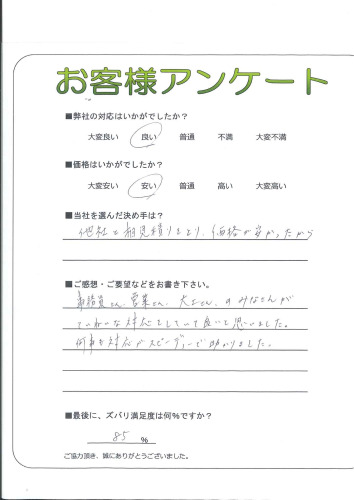 お客様アンケート
■弊社の対応はいかがでしたか?
大変良い 良い 普通 不満 大変不満
■価格はいかがでしたか?
大変安い 安い 普通 高い 大変高い
■当社を選んだ決め手は?
他社と相見積りをとり、価格が安かったから
■ご感想・ご要望などをお書き下さい。
事務員さん、営業さん、大工さん、のみなさんが
ていねいな対応をしていて良いと思いました。
何事も対応がスピーディーで助かりました。
■最後に、ズバリ満足度は何%ですか?
85 %
ご協力頂き、誠にありがとうございました。